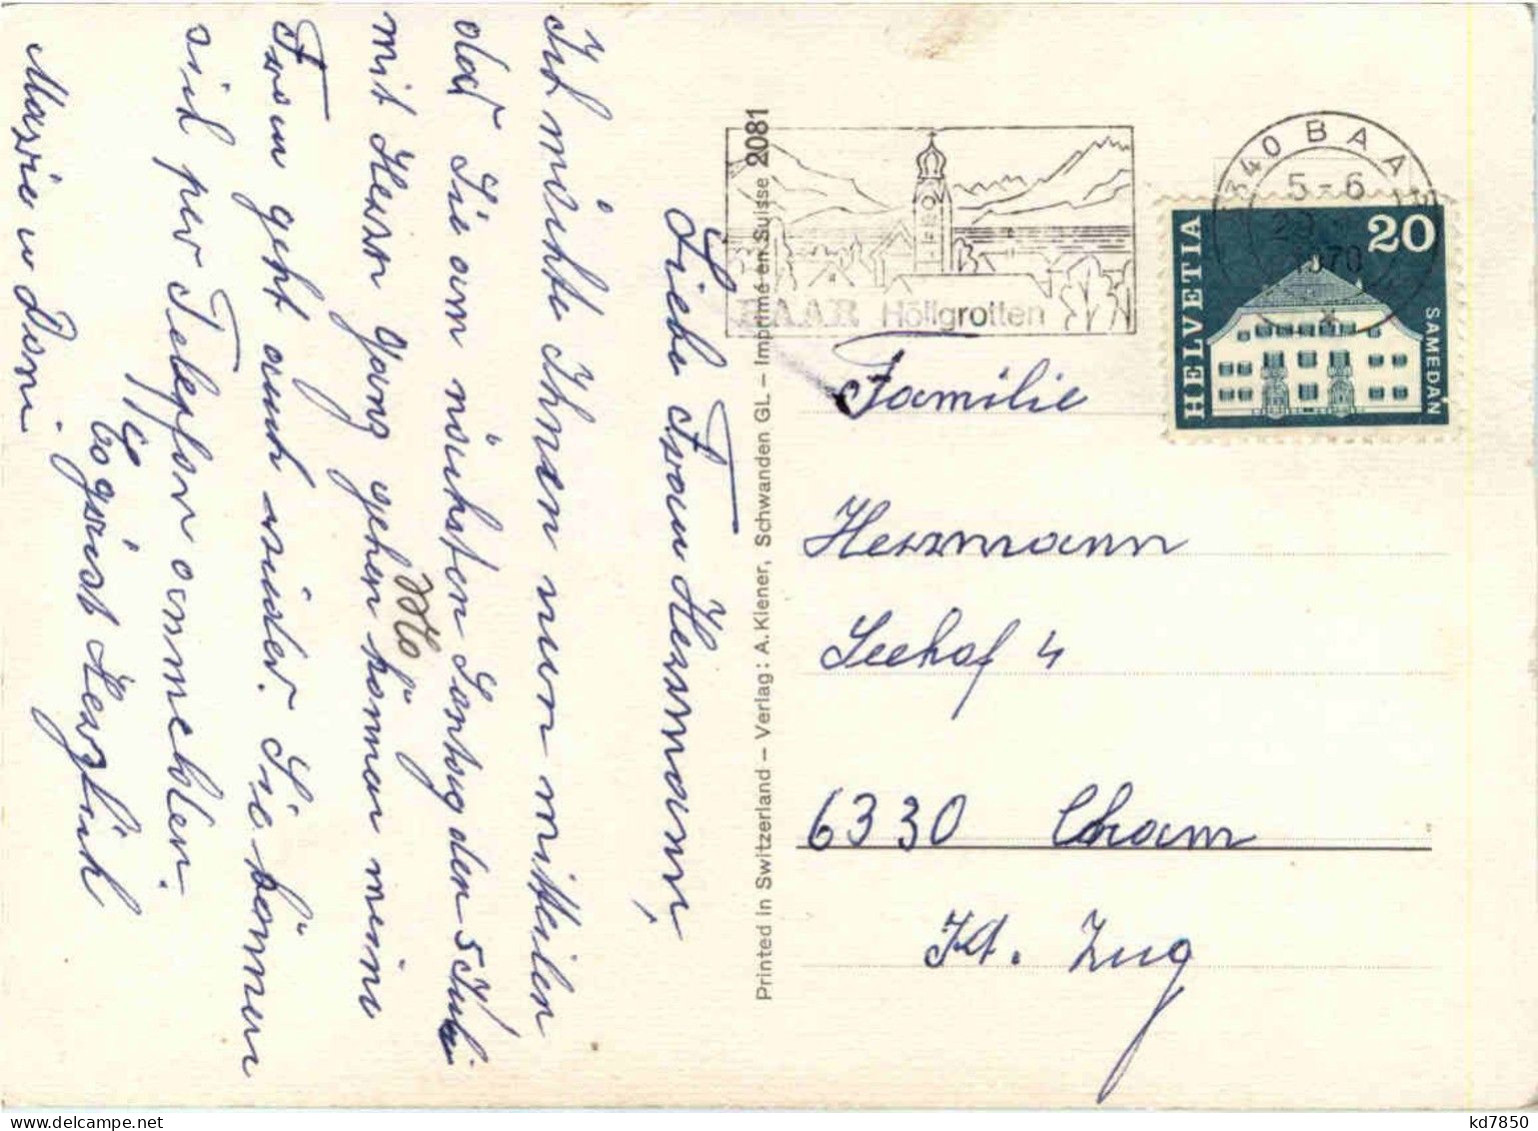 Liebe Frau Herrmann,
Ich möchte Ihnen nun mitteilen
das Sie am nächsten Sontag den 5 Juli
mit Herrn Gang gehen können meine
Frau geht auch wieder. Sie können
sich per Telefon anmelden.
Es grüsst Herzlich
Marie u Toni
Printed in Switzerland – Verlag: A. Kiener, Schwanden GL – Imprimé en Suisse 2081
BAAR Höllgrotten
6340 BAAR
5-6
1970
HELVETIA
20
SAMEDAN
Familie
Herrmann
Seehof 4
6330 Cham
Kt. Zug
kd7850